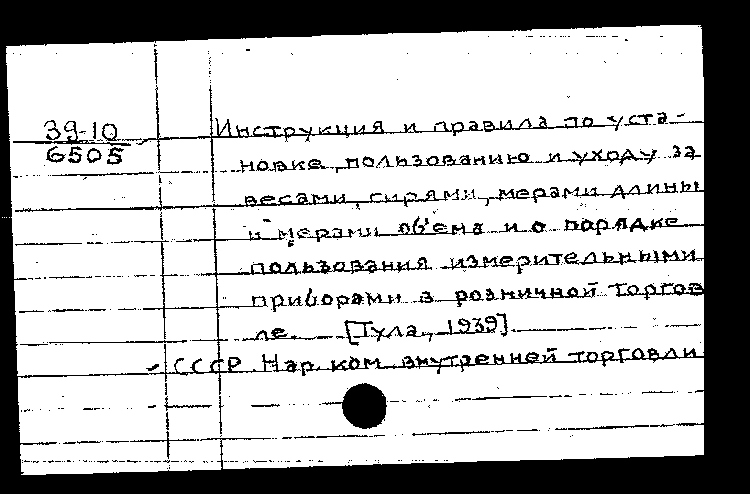 39-10
6505
Инструкция и правила по уста-
новке, пользованию и уходу за
весами, гирями, мерами длины
и мерами об'ема и о порядке
пользования измерительными
приборами в розничной торгов
ле. [Тула, 1939].
СССР. Нар. ком. внутренней торговли